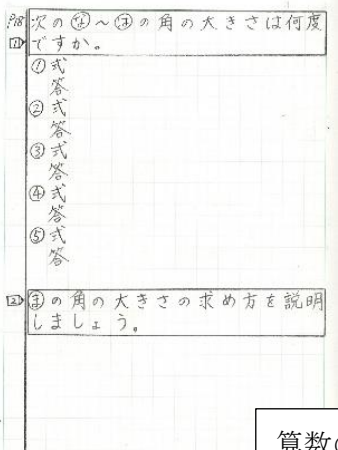 次の(な)〜(は)の角の大きさは何度
1 ですか。
①式
答
②式
答
③式
答
④式
答
⑤式
答
2 の角の大きさの求め方を説明
しましょう。
算数の